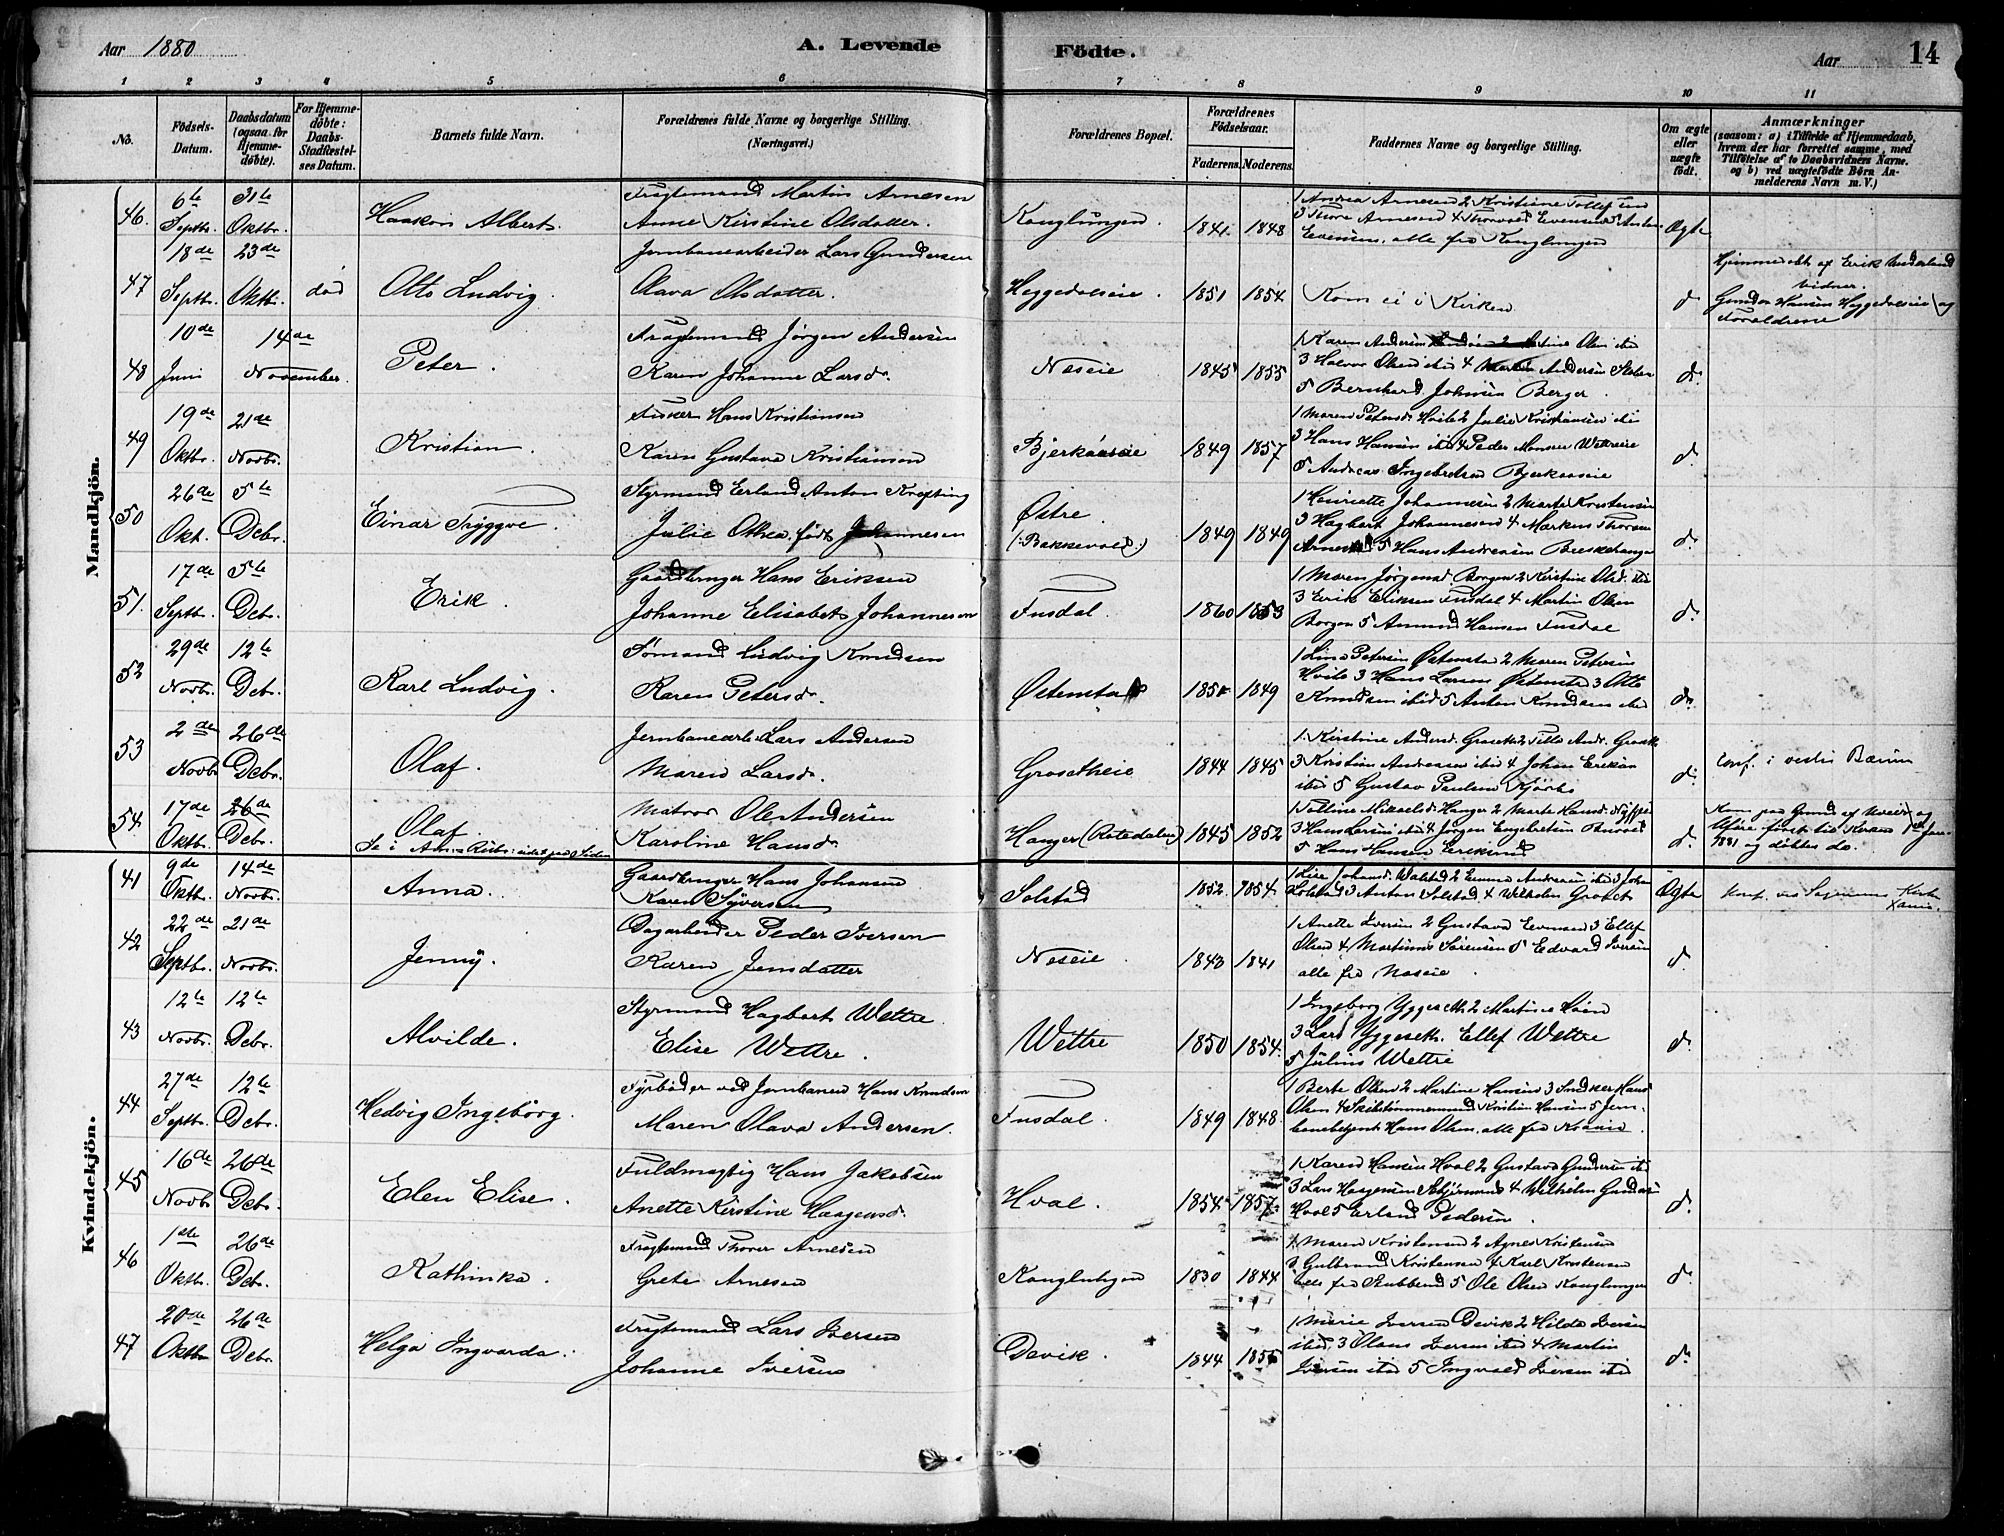 Aar 1880
A. Levende Födte.
Aar
14
1 2 3 4 5 6 7 8 9 10 11
No.
Födsels-Datum.
Daabsdatum (ogsaa for Hjemmedöbte).
For Hjemmedöbte: Daabs-Stadfæstelses Datum.
Barnets fulde Navn.
Forældrenes fulde Navne og borgerlige Stilling. (Næringsvei.)
Forældrenes Bopæl.
Forældrenes Födselsaar.
Faderens. Moderens.
Faddernes Navne og borgerlige Stilling.
Om ægte eller uægte födt.
Anmærkninger
(saasom: a) i Tilfælde af Hjemmedaab,
hvem der har forrettet samme, med
Tilföielse af to Daabsvidners Navne.
og b) ved uægtefödte Börn An-
melderens Navn m. V.)
Mandkjön.
46. 6te Septbr. 31te Oktbr. Haakon Albert.
Fragtemand Martin Arnesen
Anne Kirstine Olsdatter.
Konglungen 1841. 1848
1 Andrea Arnesen 2 Kristiane
3 Thore Arnesen 4 Thorvald Evensen 5 Anton
Evensen, alle fra Konglungen
Ægte
47 18de Septbr. 23de Oktbr. død Otto Ludvig.
Jernbanearbeider Lars Gundersen
Olava Olsdatter.
Heggedalseie. 1851 1854.
Kom ei i Kirken
do
Hjemmedøbt af Erik
Vidner.
Gunder Hansen Heggedalseie og
Forældrene
48 10de Juni 14de November. Peter.
Fragtemand Jörgen Andersen
Karen Johanne Larsd.
Neseie 1845 1855
1 Karen Andersen 2 Olsen ibid
3 Halvor Olsen ibid 4 Andersen
5 Bernhard Johnsen Berger.
do
49 19de Oktbr. 21de Novbr. Kristian.
Fisker Hans Kristiansen
Karen Gustava Kristiansen
Bjerkaaseie 1849 1857
1 Maren Petersd. Hvile 2 Julie Kristiansen ibi
3 Hans Hansen ibid 4 Peder Monsen Wettreie
5 Andreas Ingebretsen Bjerkaaseie
do
50 26de Okt. 5te Debr. Einar Tryggve.
Styrmand Erland Anton Krefting
Julie Othea, født Johannesen
Østre.
(:Bakkevold:) 1849 1849
1 Henriette Johannesen 2 Marte Kristensen
3 Hagbart Johannesen 4 Markus Thorsen
5 Hans Andreasen
do
51. 17de Septb. 5te Debr. Erik.
Gaardbruger Hans Eriksen
Johanne Elisabet Johannesen
Fusdal. 1860 1853
1 Maren Jörgensd. Borgen 2 Kirstine Olsd. ibid
3 Erik Eriksen Fusdal 4 Martin Olsen
Borgen 5 Amund Hansen Fusdal
do
52 29de Novbr. 12te Debr. Karl Ludvig.
Sømand Ludvig Knudsen
Karen Petersd.
Østenstad 1849
1 Lina Petersen Østenstad 2 Maren Petersen
Hvile 3 Hans Larsen Østensta 3 Otto
Knudsen ibid 5 Anton Knudsen ibid
do
53 2den Novbr. 26de Debr. Olaf.
Jernbanearb. Lars Andersen
Maren Larsd.
Grosetheie 1844 1845
1. Kirstine Andersd. Groseth
3 Kristian Andreasen ibid 4 Johan Eriksen
ibid 5 Gustav Paulsen Kjörbo
do
Conf. i vestre Bærum
54. 17de Oktbr. 26de Debr. Olaf.
Matros Ole Andersen
Karoline Hansd.
Hanger (Rotedalen) 1845 1852
1 Mikaelsd. Hanger 2 Marte Hansd.
3 Hans Larsen ibid 4 Jörgen Engebretsen
5 Hans Hansen
do
Kom paa Grund af Uveier og
Uføre først til Kirken 1ste Jan.
1881 og døbtes da.
Kvindekjön.
41 9de Oktb. 14de Novbr. Anna.
Gaardbruger Hans Johansen
Karen Syversen
Solstad 1852. 1854.
2 Emma Andersen ibid 3 Johan
Solstad 3 Anton Solstad 4 Wilhelm Groset
Ægte
42 22de Septbr. 21de Novbr. Jenny.
Dagarbeider Peder Iversen
Karen Jensdatter
Neseie 1843 1841
1 Anette Iversen 2 Gustava Evensen 3 Ellef
Olsen 4 Martinus Sörensen 5 Edvard Iversen
alle fra Naseie.
do
43 12te Novbr. 12te Debr. Alvilde.
Styrmand Hagbart Wettre.
Elise Wettre.
Wettre 1850 1854.
1 Ingeborg Yggeseth 2 Martine Høen
3 Lars Yggeseth. Ellef Wettre
5 Julius Wettre
do
44 27de Septbr. 12te Debr. Hedvig Ingebörg.
Fyrbøder ved Jernbanen Hans Knudsen
Maren Olava Andersen.
Fusdal. 1849 1848.
1 Berte Olsen 2 Martine Hansen 3 Snedker Hans
Olsen 4 Skibstømmermand Kristian Hansen 5 Jern-
banebetjent Hans Olsen. alle fra
do
45 16de Novbr 26de Debr. Elen Elise.
Fuldmægtig Hans Jakobsen
Anette Kirstine Haagensd.
Hval. 1854 1857
1 Karen Hansen Hval 2 Gustava Gundersen ibid
3 Lars Haagensen Styrmand 4 Wilhelm Gundersen
Hval 5 Erland Pedersen.
do
46 1ste Oktbr. 26de Debr. Kathinka.
Fragtemand Thorer Arnesen
Grete Arnesen
Konglungen 1830 1844
1 Maren Kristensen 2 Agnes Kristensen
3 Gulbrand Kristensen 4 Karl Kristensen
alle fra Stubben 5 Ole Olsen Konglungen
do
47 20de Oktbr 26de Debr. Helga Ingvarda.
Fragtemand Lars Iversen
Johanne Iversen
Devik. 1844
1 Marie Iversen Devik 2 Hilda Iversen
ibid, 3 Olaus Iversen ibid 4 Martin
Iversen ibid 5 Ingvald Iversen ibid
do